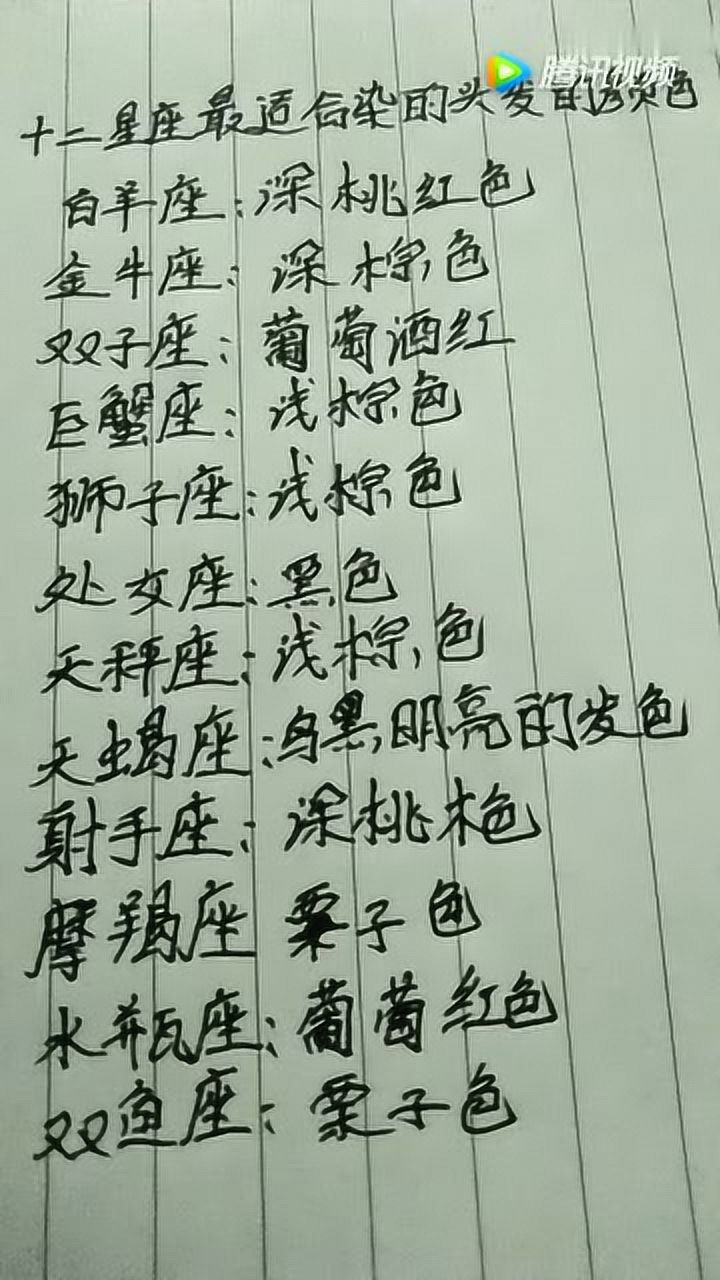 腾讯视频
十二星座最适合染的头发的颜色
白羊座:深桃红色
金牛座:深棕色
双子座:葡萄酒红
巨蟹座:浅棕色
狮子座:浅棕色
处女座:黑色
天秤座:浅棕色
天蝎座:乌黑明亮的发色
射手座:深桃木色
摩羯座 栗子色
水瓶座:葡萄红色
双鱼座:栗子色